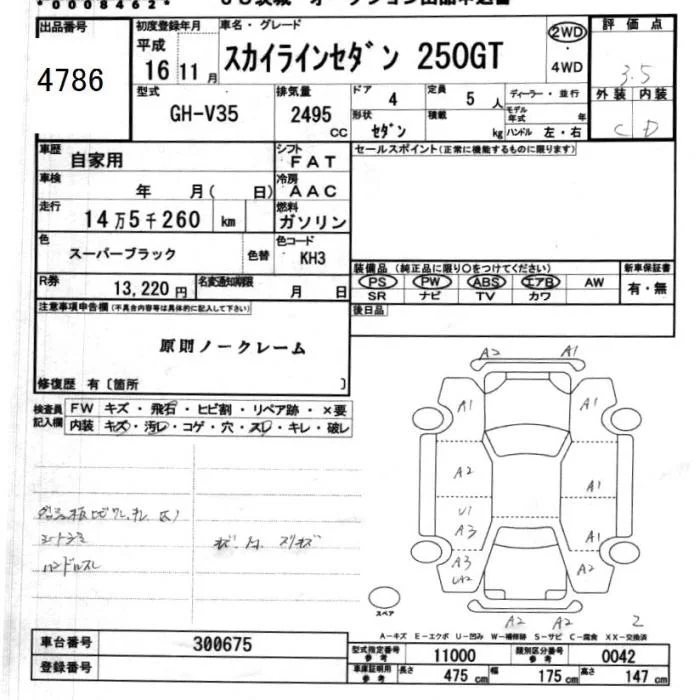 *00008462*
出品番号
4786
初度登録年月
平成
16 11 月
車名・グレード
スカイラインセダン 250GT
2WD
・
4WD
評価点
3.5
型式
GH-V35
排気量
2495
CC
ドア 4
定員 5 人
形状 セダン
積載 kg
ディーラー・並行
モデル年式 年
ハンドル 左・右
外装 内装
C D
車歴
自家用
シフト
FAT
セールスポイント(正常に機能するものに限る)
車検
年 月( 日)
冷房
AAC
走行
14万5千260 km
燃料
ガソリン
色
スーパーブラック
色替
色コード
KH3
R券
13,220円
名変通知期限
月 日
装備品(純正品に限り○をつけてください)
PS PW ABS エアB AW
SR ナビ TV カワ
新車保証書
有・無
後日品
注意事項申告欄(不具合内容等は具体的に記入して下さい)
原則ノークレーム
修復歴 有〔箇所 〕
検査員
記入欄
FW キズ・飛石・ヒビ割・リペア跡・×要
内装 キズ・汚レ・コゲ・穴・スレ・キレ・破レ
ハンドルスレ
A2 A1
A1 A1
A2 A1
U1
A3 A1
A3 A2
UA2
A2 A2
2
スペア
A-キズ E-エクボ U-凹み W-補修跡 S-サビ C-腐食 XX-交換済
車台番号
300675
登録番号
型式指定番号
参考
11000
類別区分番号
参考
0042
車庫証明用
参考
長さ 475 cm
幅 175 cm
高さ 147 cm